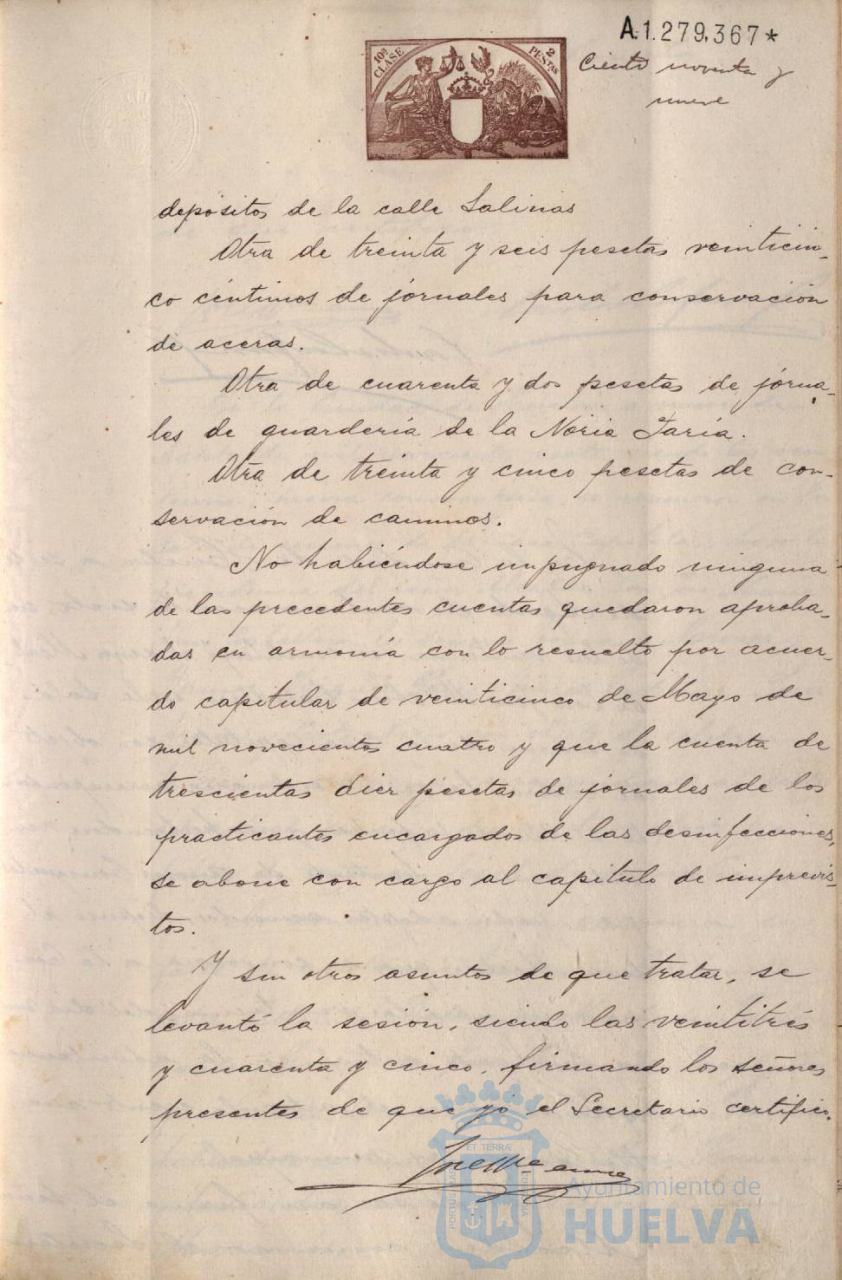 A.1.279,367*
10ª CLASE
2 PESETAS
Ciento noventa y
nueve
depósitos de la calle Salinas
Otra de treinta y seis pesetas veinticin-
co céntimos de jornales para conservación
de aceras.
Otra de cuarenta y dos pesetas de jorna-
les de guardería de la Noria Jaria.
Otra de treinta y cinco pesetas de con-
servación de caminos.
No habiéndose impugnado ninguna
de las precedentes cuentas quedaron aproba-
das en armonía con lo resuelto por acuer-
do capitular de veinticinco de Mayo de
mil novecientos cuatro y que la cuenta de
trescientas diez pesetas de jornales de los
practicantes encargados de las desinfecciones,
se abone con cargo al capítulo de imprevis-
tos.
Y sin otros asuntos de que tratar, se
levantó la sesión, siendo las veintitrés
y cuarenta y cinco, firmando los señores
presentes de que yo el Secretario certifico.
ET TERRAE
Ayuntamiento de
HUELVA